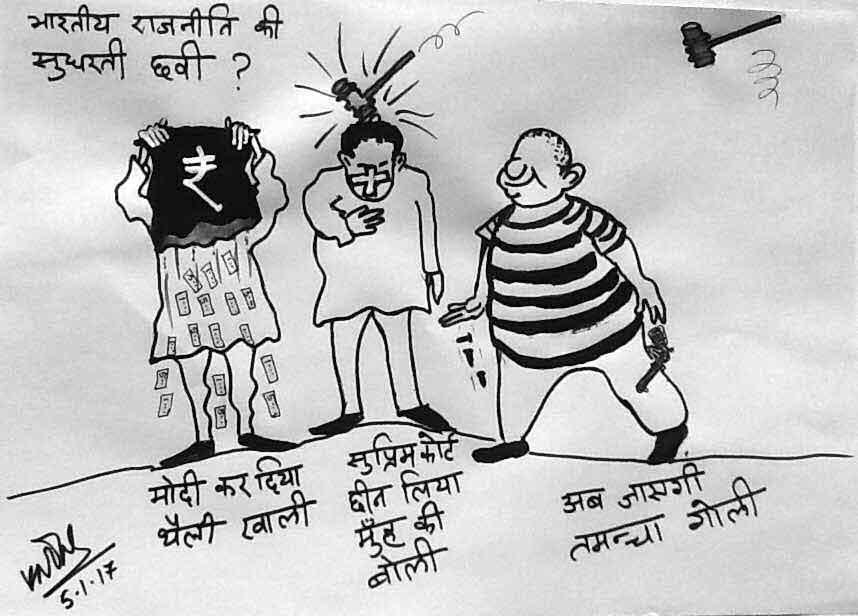 भारतीय राजनीति की
सुधरती छवी ?
₹
मोदी कर दिया
थैली खाली
सुप्रिम कोर्ट
छीन लिया
मुँह की
बोली
अब जाएगी
तमन्चा गोली
5.1.17